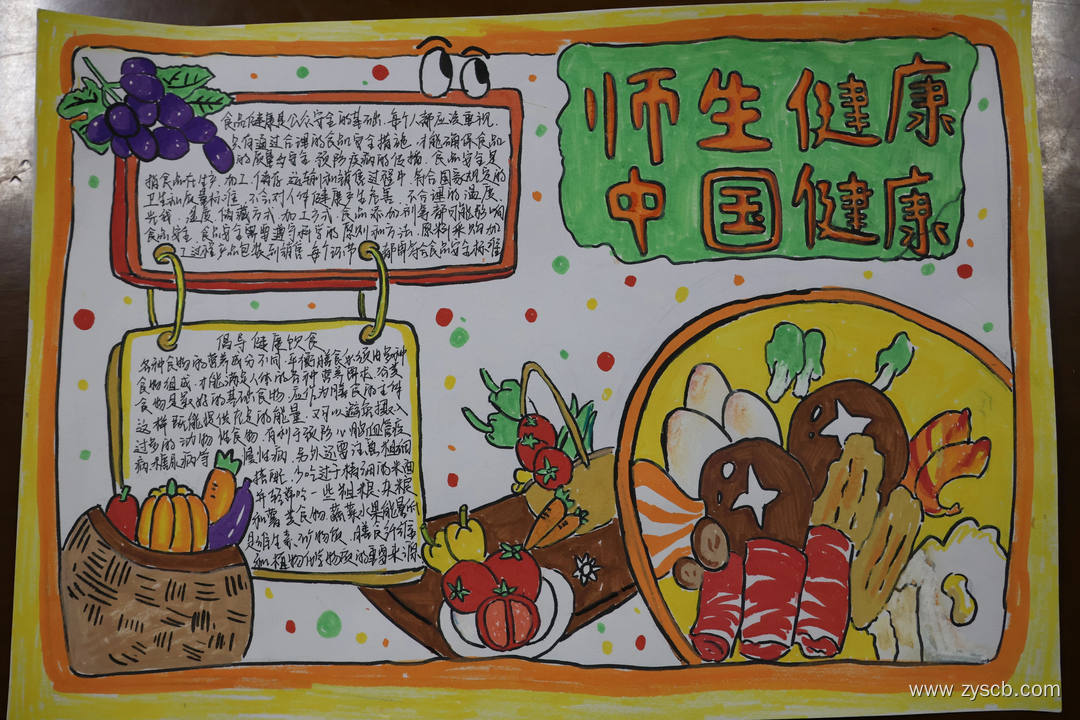 师生健康
中国健康
食品健康是公众安全的基础,每个人都应该重视.
只有通过合理的食品安全措施,才能确保食品
的质量与安全,预防疾病的传播.食品安全是
指食品在生产、加工、储存、运输和销售过程中,符合国家规定的
卫生和质量标准,不会对人体健康产生危害.不合理的温度、
光线、湿度、储藏方式、加工方式、食品添加剂等都可能影响
食品安全.食品安全需要遵守科学的原则和方法.原料采购加
工过程产品包装到销售,每个环节都
符合食品安全标准
倡导健康饮食
各种食物的营养成分不同,平衡膳食必须由多种
食物组成,才能满足人体的各种营养需求.谷类
食物是最好的基础食物,应作为膳食的主体
这样既能提供充足的能量,又可以避免摄入
过多的动物性食物,有利于预防心脑血管疾
病、糖尿病等慢性病.另外还要注意粗细
搭配,少吃过于精细的米面
并经常吃一些粗粮、杂粮
和薯类食物.蔬菜水果能量低
是维生素、矿物质、膳食纤维
和植物化学物质的重要来源
www.zyscb.com